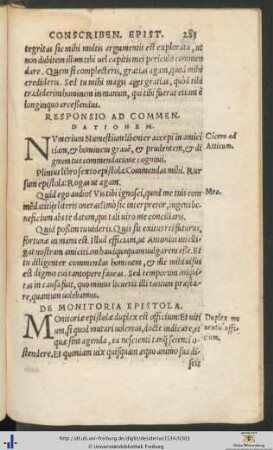 CONSCRIBEN. EPIST. 285
tegritas sic mihi multis argumentis est explorata, ut
non dubitem illum tibi uel capitis mei periculo commen
dare. Quem si complecteris, gratias agam, quod mihi
credideris. Sed tu mihi magis ages gratias, quòd tibi
tradiderim hominem in manum, qui tibi fuerat etiam è
longinquo arcessendus.
RESPONSIO AD COMMEN.
DATIONEM.
NVmerium Numestium libenter accepi in amici
tiam, & hominem grauē, & prudentem, & di
gnum tua commendatione cognoui.
Cicero ad
Atticum.
Plinius libro sexto epistola: Commendas mihi. Rur
sum epistola: Rogas ut agam.
Quid ego audio? Vis tibi ignosci, quod me tuis com
mēdatitijs literis oneraris? sic interpretor, ingens be
neficium abs te datum, qui tali uiro me conciliaris.
Mea.
Quid possem tu uideris. Quis sit exitus rei futurus,
fortuna in manu est. Illud efficiam, ut Antonius intelli
gat nostram amicitiam haud quaquam uulgarem esse. Et
tu diligenter commendas hominem, & die mihi uisus
est dignus cui tantopere faueas. Sed temporum iniqui
tas in causa fuit, quo minus licuerit illi tantum præsta
re, quantum uolebamus.
DE MONITORIA EPISTOLA.
MOnitoriæ epistolæ duplex est officium: Et uiti
um, si quod mutari uolemus, docte indicare, et
quæ sint agenda, ea nescienti tanq̃ scienti o
stendere. Et quoniam uix quisquam æquo animo sua di-
scit
Duplex mo
nendi offi-
cium.
http://dl.ub.uni-freiburg.de/diglit/desiderius1534/0303
© Universitätsbibliothek Freiburg